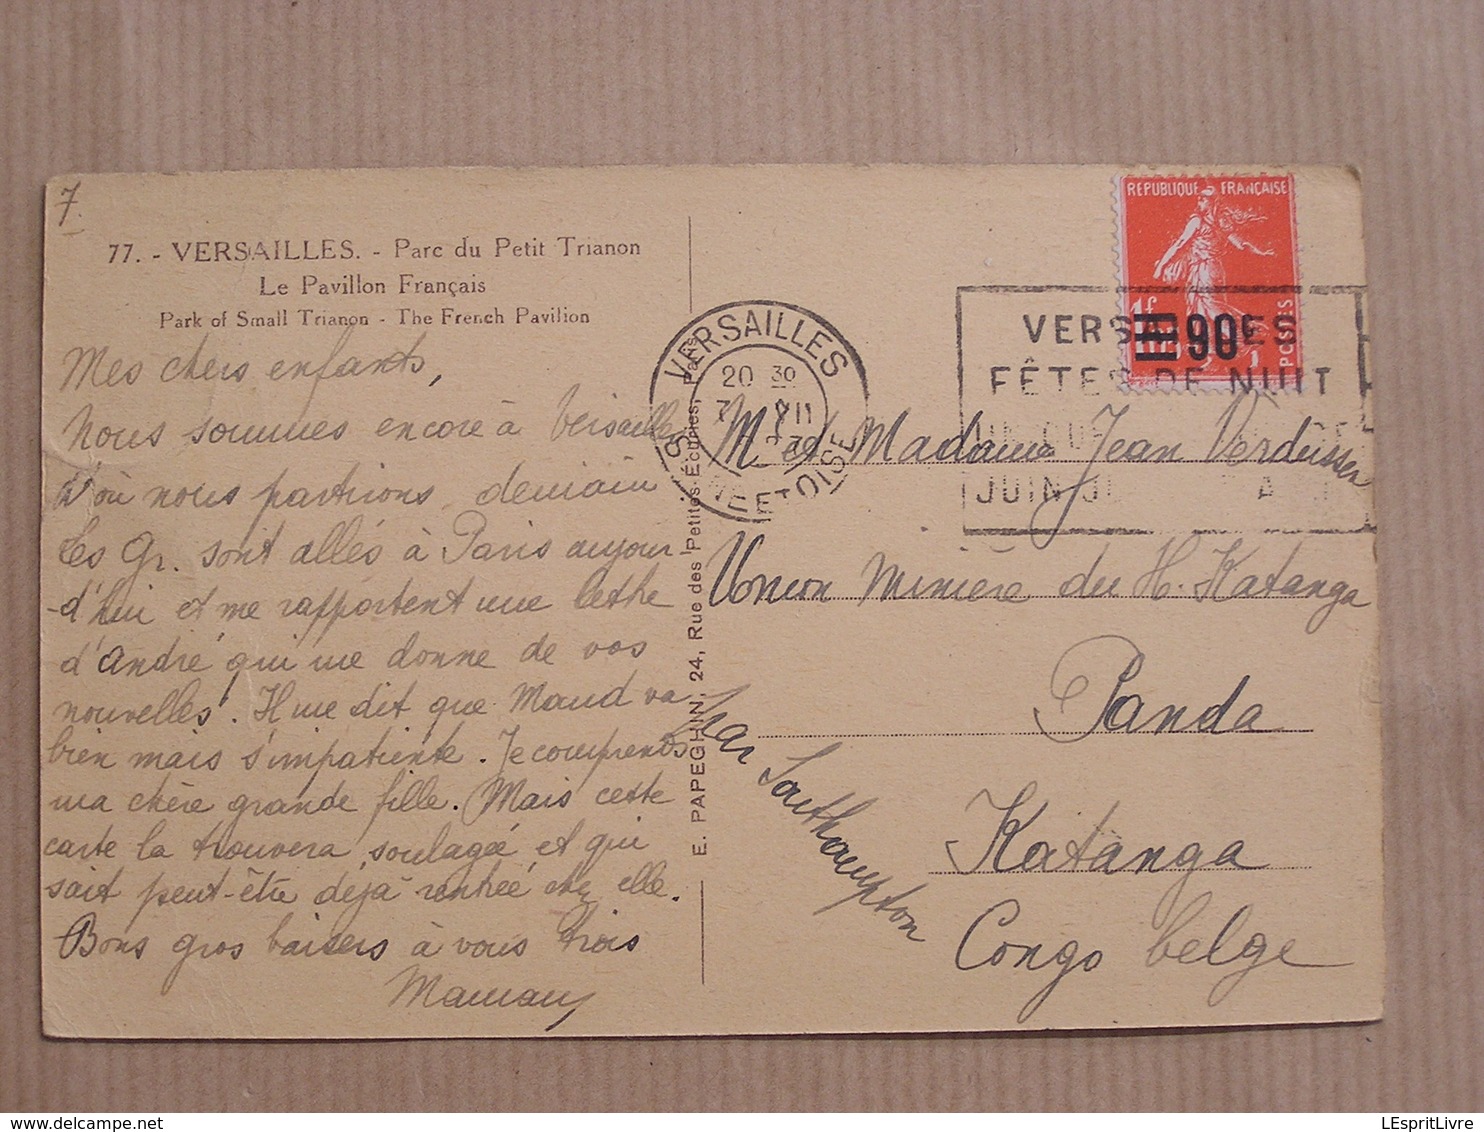 7.
77. - VERSAILLES. - Parc du Petit Trianon
Le Pavillon Français
Park of Small Trianon - The French Pavilion
Mes chers enfants,
Nous sommes encore à Versailles
d'où nous partirons demain
Les Gr. sont allés à Paris aujour-
-d'hui et me rapportent une lettre
d'André qui me donne de vos
nouvelles. Il me dit que Maud va
bien mais s'impatiente. Je comprends
ma chère grande fille. Mais cette
carte la trouvera soulagée et qui
sait peut-être déjà rentrée chez elle.
Bons gros baisers à vous trois
Maman
E. PAPEGHIN, 24, Rue des Petites Écuries, Paris
VERSAILLES
20 30
7 VII
SNE ET OISE
REPUBLIQUE FRANÇAISE
POSTES
1F
90c
VERSAILLES
FÊTES DE NUIT
JUIN
M. et Madame Jean Verdussen
Union Minière du H. Katanga
Panda
Katanga
Congo belge
par Southampton
LEspritLivre
delcampe.net